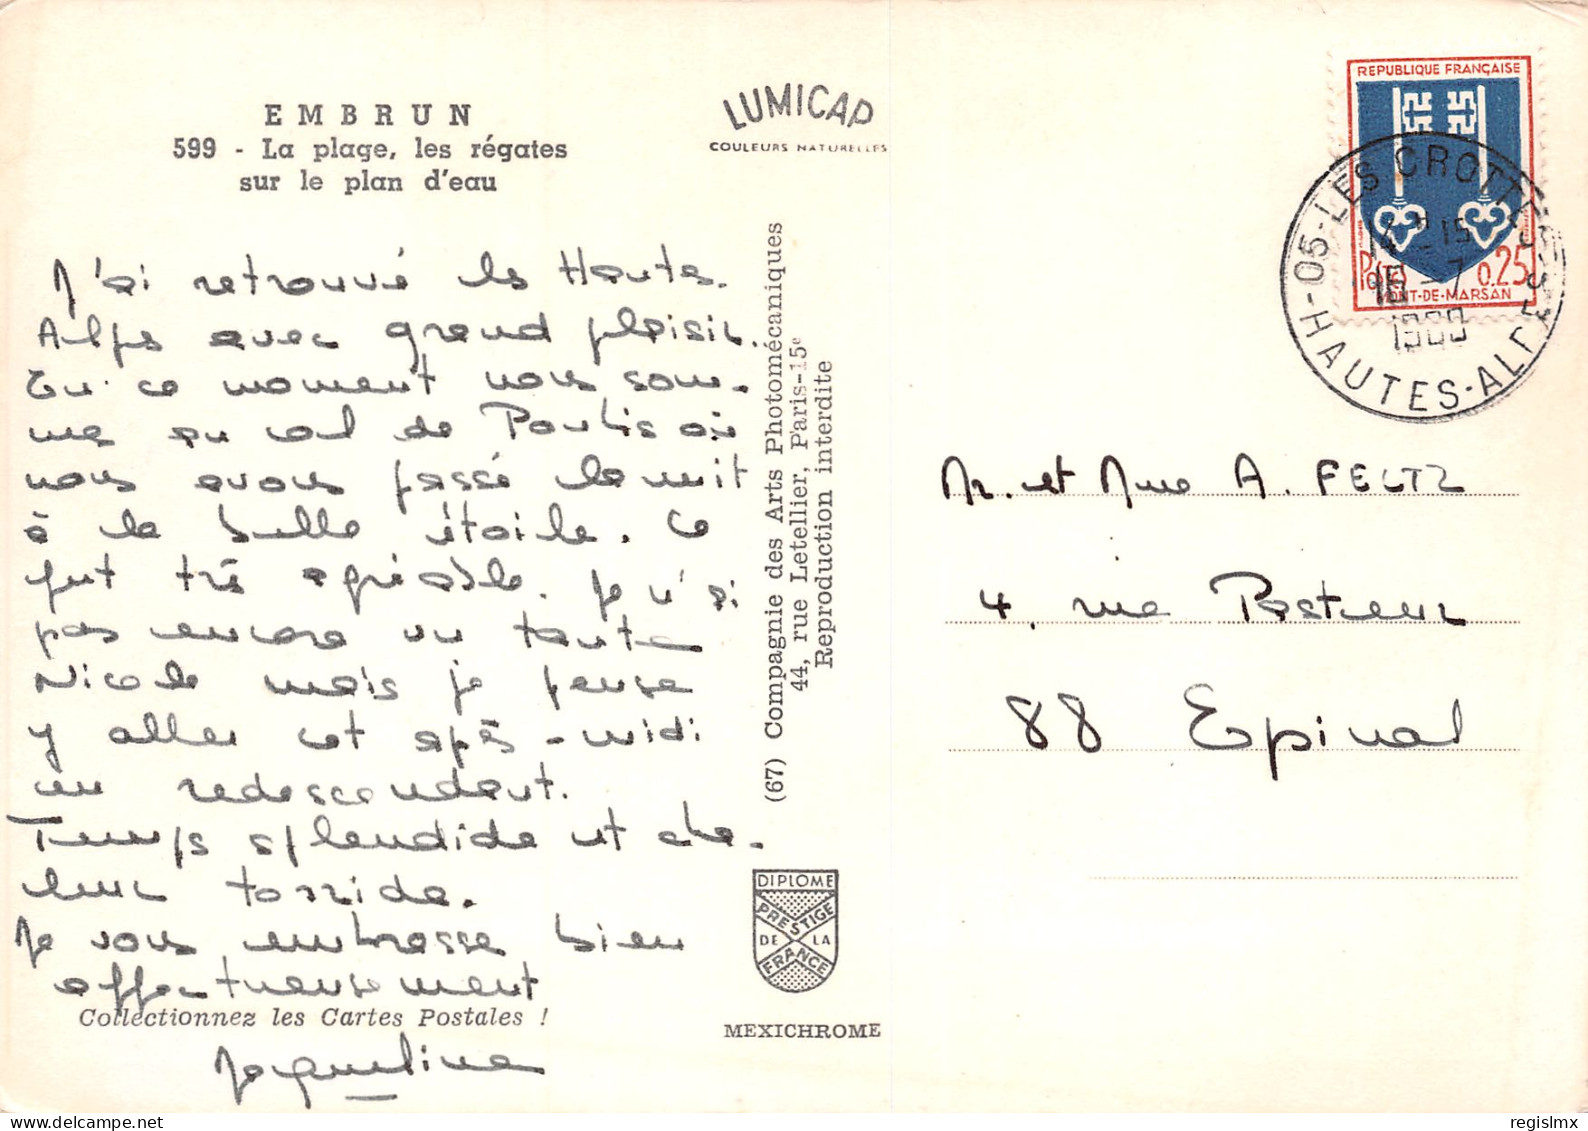 EMBRUN
599 - La plage, les régates
sur le plan d'eau
LUMICAP
COULEURS NATURELLES
J'ai retrouvé les Hautes
Alpes avec grand plaisir.
En ce moment nous som-
mes au col de où
nous avons passé la nuit
à la belle étoile. Ce
fut très agréable. Je n'ai
pas encore vu tante
Nicole mais je pense
y aller cet après-midi
en redescendant.
Temps splendide et cha-
leur torride.
Je vous embrasse bien
affectueusement
Collectionnez les Cartes Postales !
Jacqueline
(67) Compagnie des Arts Photomécaniques
44, rue Letellier, Paris-15e
Reproduction interdite
DIPLOME
PRESTIGE
DE LA
FRANCE
MEXICHROME
REPUBLIQUE FRANÇAISE
0.25
MONT-DE-MARSAN
05-LES CROTTES
HAUTES-ALPES
M. et Mme A. FELTZ
4, rue Pasteur
88 Epinal
regislmx